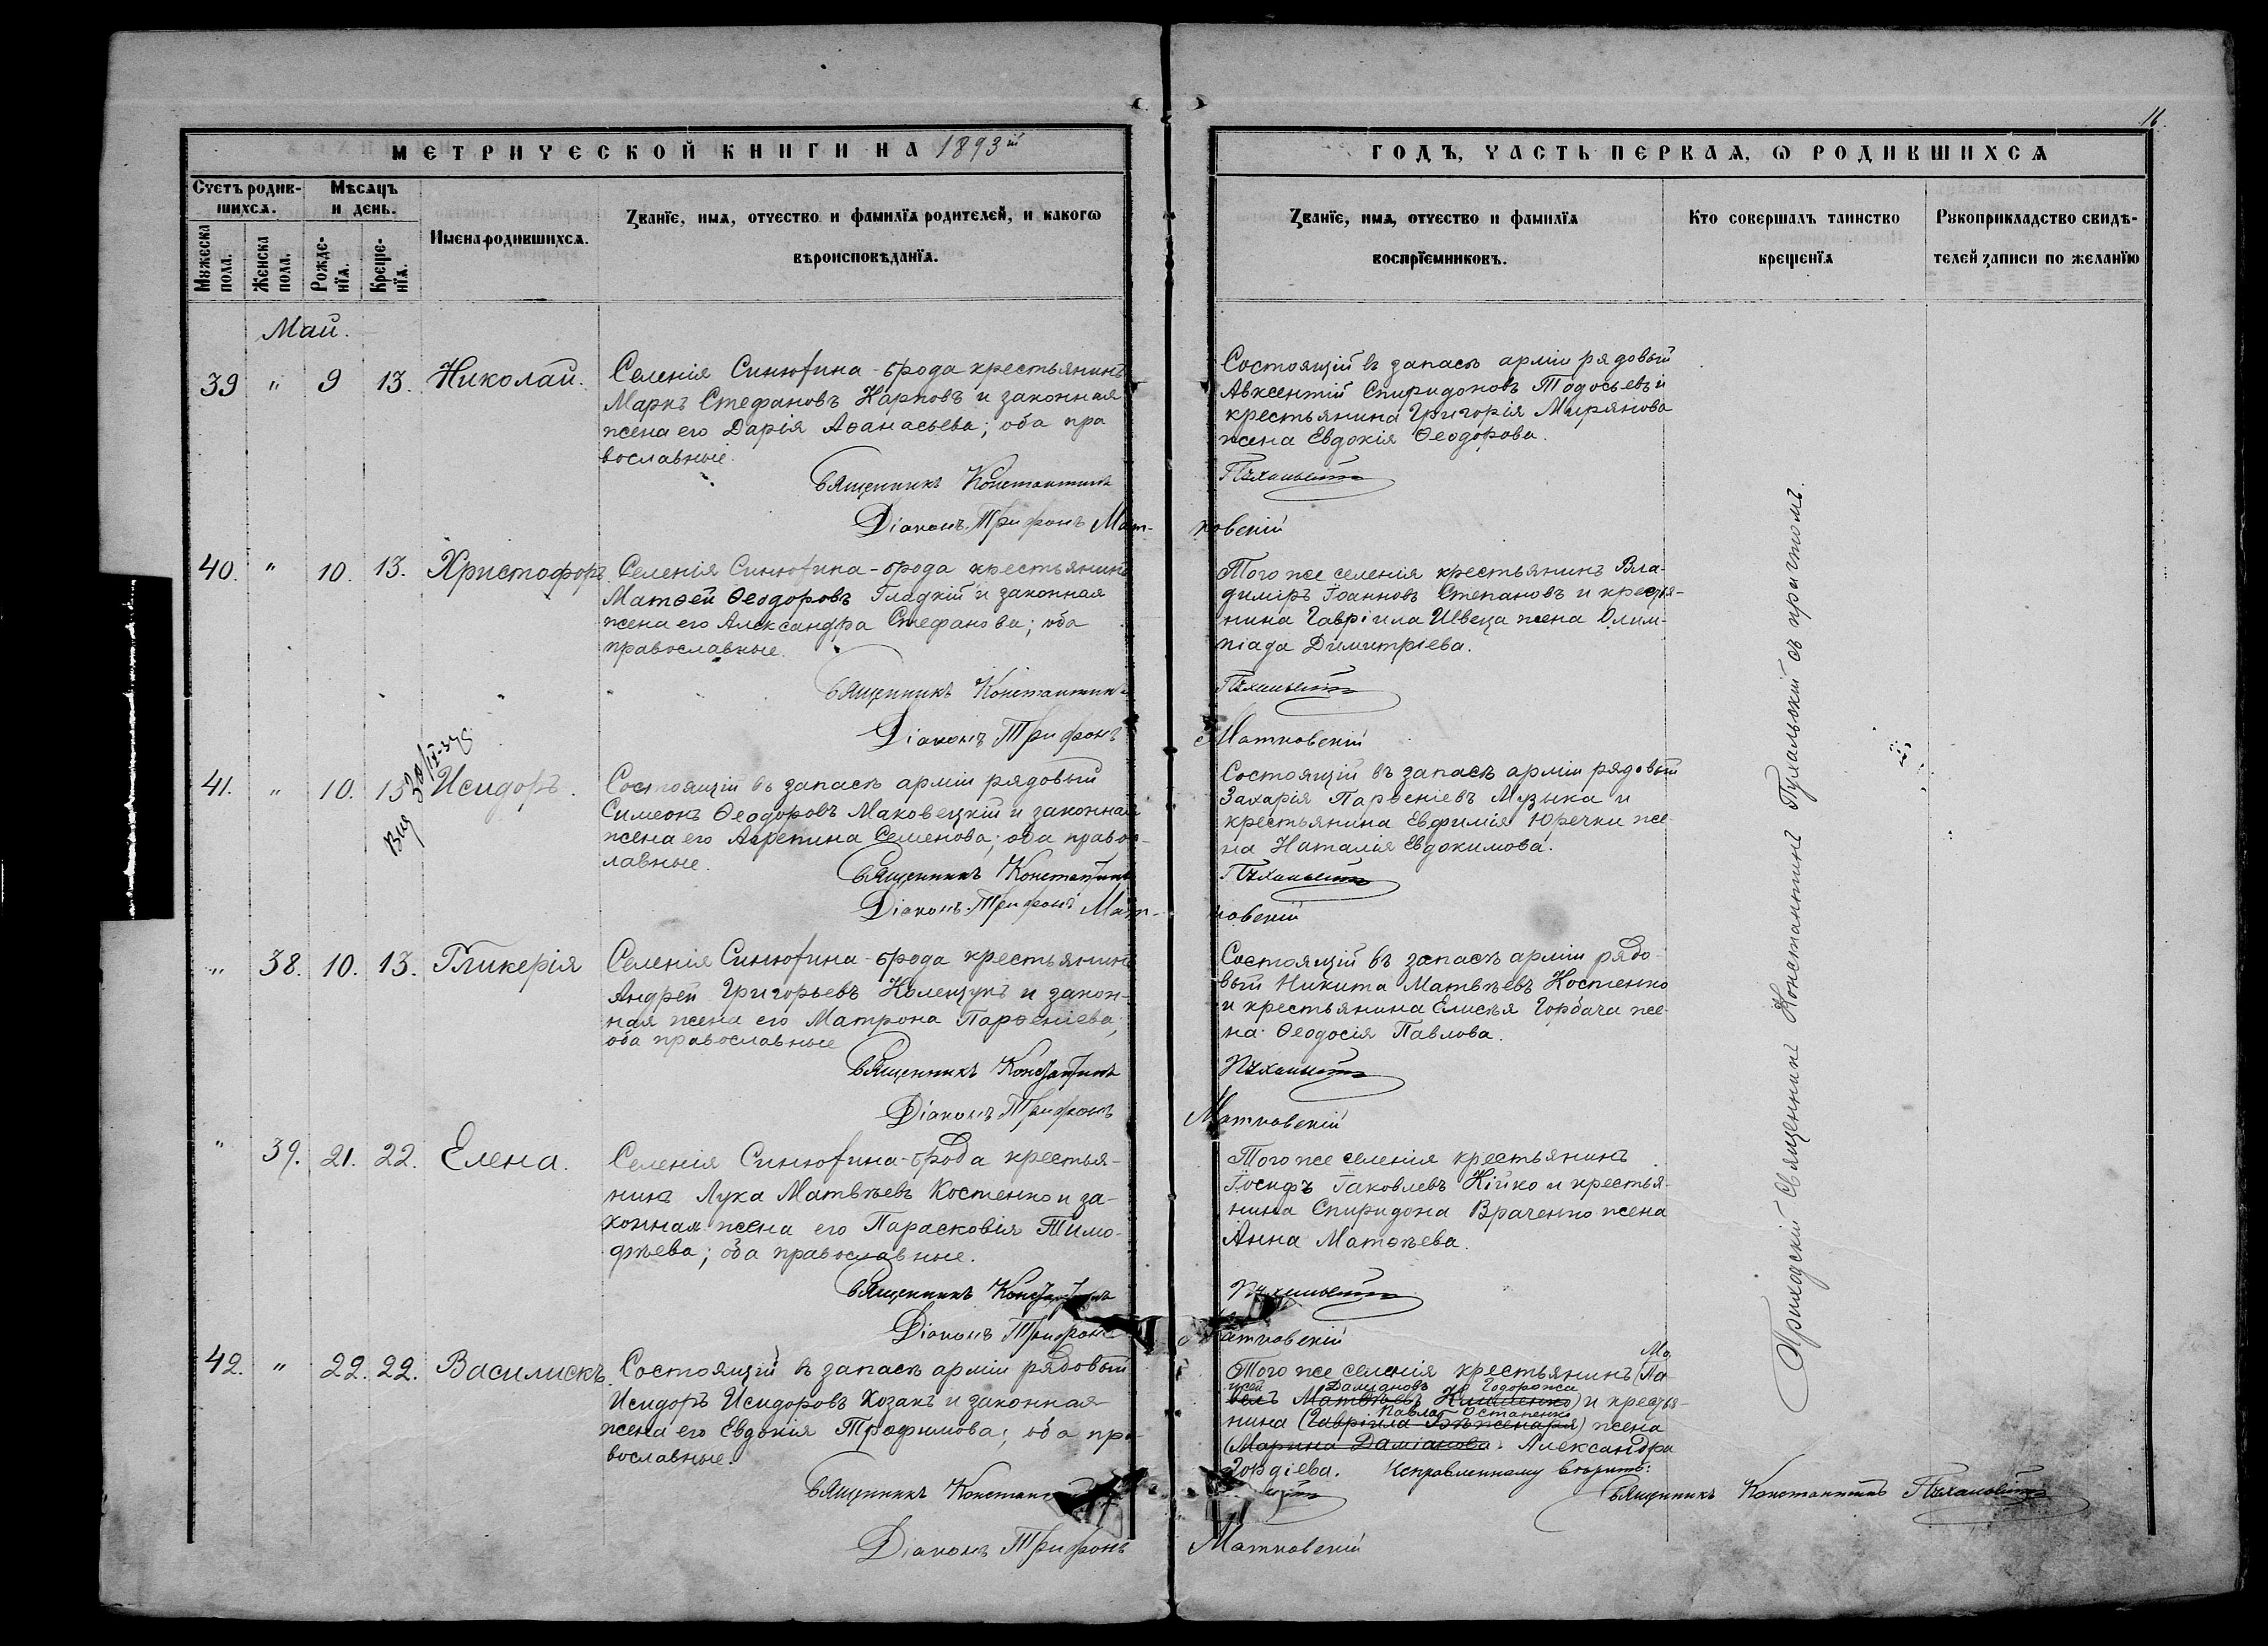 16.
МЕТРИЧЕСКОЙ КНИГИ НА 1893й
ГОДЪ, ЧАСТЬ ПЕРВАѦ, Ѡ РОДИВШИХСѦ
Счетъ родив-
шихсѧ.
Мѣсѧцъ
и день.
Мꙋжеска
пола.
Женска
пола.
Рожде-
нїѧ.
Креще-
нїѧ.
Имена родившихсѧ.
Званїе, имѧ, отчество и фамилїѧ родителей, и какогѡ
вѣроисповѣданїѧ.
Званїе, имѧ, отчество и фамилїѧ
воспрїемниковъ.
Кто совершалъ таинство
крещенїѧ
Рꙋкоприкладство свидѣ-
телей записи по желанїю
Май.
39 " 9 13. Николай.
Селенія Синюхина-брода крестьянинъ
Маркъ Стефановъ Карповъ и законная
жена его Дарія Аѳанасьева; оба пра
вославные.
Священникъ Константинъ
Діаконъ Трифонъ Мат-
Состоящій въ запасѣ арміи рядовый
Авксентій Спиридоновъ Тодосьевъ и
крестьянина Григорія Мирянова
жена Евдокія Ѳеодорова.
ковскій
40. " 10. 13. Христофоръ.
Селенія Синюхина-брода крестьянинъ
Матѳей Ѳеодоровъ Гладкій и законная
жена его Александра Стефанова; оба
православные.
Священникъ Константинъ
Діаконъ Трифонъ
Того же селенія крестьянинъ Вла-
диміръ Іоанновъ Степановъ и крестья-
нина Гавріила Швеца жена Олим-
піада Димитріева.
Матковскій
41. " 10. 13 Исидоръ.
Состоящій въ запасѣ арміи рядовый
Симеонъ Ѳеодоровъ Маковецкій и законная
жена его Агрепина Семенова; оба правос-
лавные.
Священникъ Константинъ
Діаконъ Трифонъ Мат-
Состоящій въ запасѣ арміи рядовый
Захарія Парѳеніевъ Музыка и
крестьянина Евфимія Юречки же-
на Наталія Евдокимова.
ковскій
" 38. 10. 13. Гликерія
Селенія Синюхина-брода крестьянинъ
Андрей Григорьевъ Коленчукъ и закон-
ная жена его Матрона Парѳеніева;
оба православные
Священникъ Константинъ
Діаконъ Трифонъ
Состоящій въ запасѣ арміи рядо-
вый Никита Матвѣевъ Костенко
и крестьянина Елисѣя Горбача же-
на Ѳеодосія Павлова.
Матковскій
" 39. 21. 22. Елена.
Селенія Синюхина-брода крестья-
нинъ Лука Матвѣевъ Костенко и за-
конная жена его Парасковія Тимо-
фѣева; оба православные.
Священникъ Константинъ
Діаконъ Трифонъ
Того же селенія крестьянинъ
Іосифъ Іаковлевъ Кійко и крестья-
нина Спиридона Враченко жена
Анна Матѳѣева.
Матковскій
42. " 22. 22. Василискъ.
Состоящій въ запасѣ арміи рядовый
Исидоръ Исидоровъ Козакъ и законная
жена его Евдокія Трофимова; оба пра-
вославные.
Священникъ Константинъ
Діаконъ Трифонъ
Мо
Того же селенія крестьянинъ (Па
исей Даміановъ Годорожа
велъ Матвѣевъ) и крестья-
Павла Остапенко
нина (Гавріила) жена
(Марина Даміанова) Александра
Гордіева. Исправленному вѣрить:
Священникъ Константинъ
Матковскій
Приходскій Священникъ Константинъ Пухальскій съ причтомъ.